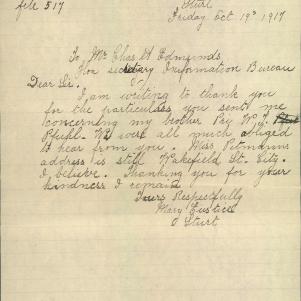 file 517
Sturt
Friday Oct 19th 1917
To, Mr Chas A Edmunds
Hon secretary Information Bureau
Dear Sir.
I am writing to thank you
for the particulars you sent me
concerning my brother Pey W. J.
Pfuhl. We were all much obliged
to hear from you. Miss Petmanns
address is still Wakefield St. City.
I believe. Thanking you for your
kindness I remain
Yours Respectfully
Mary Eustice
Sturt